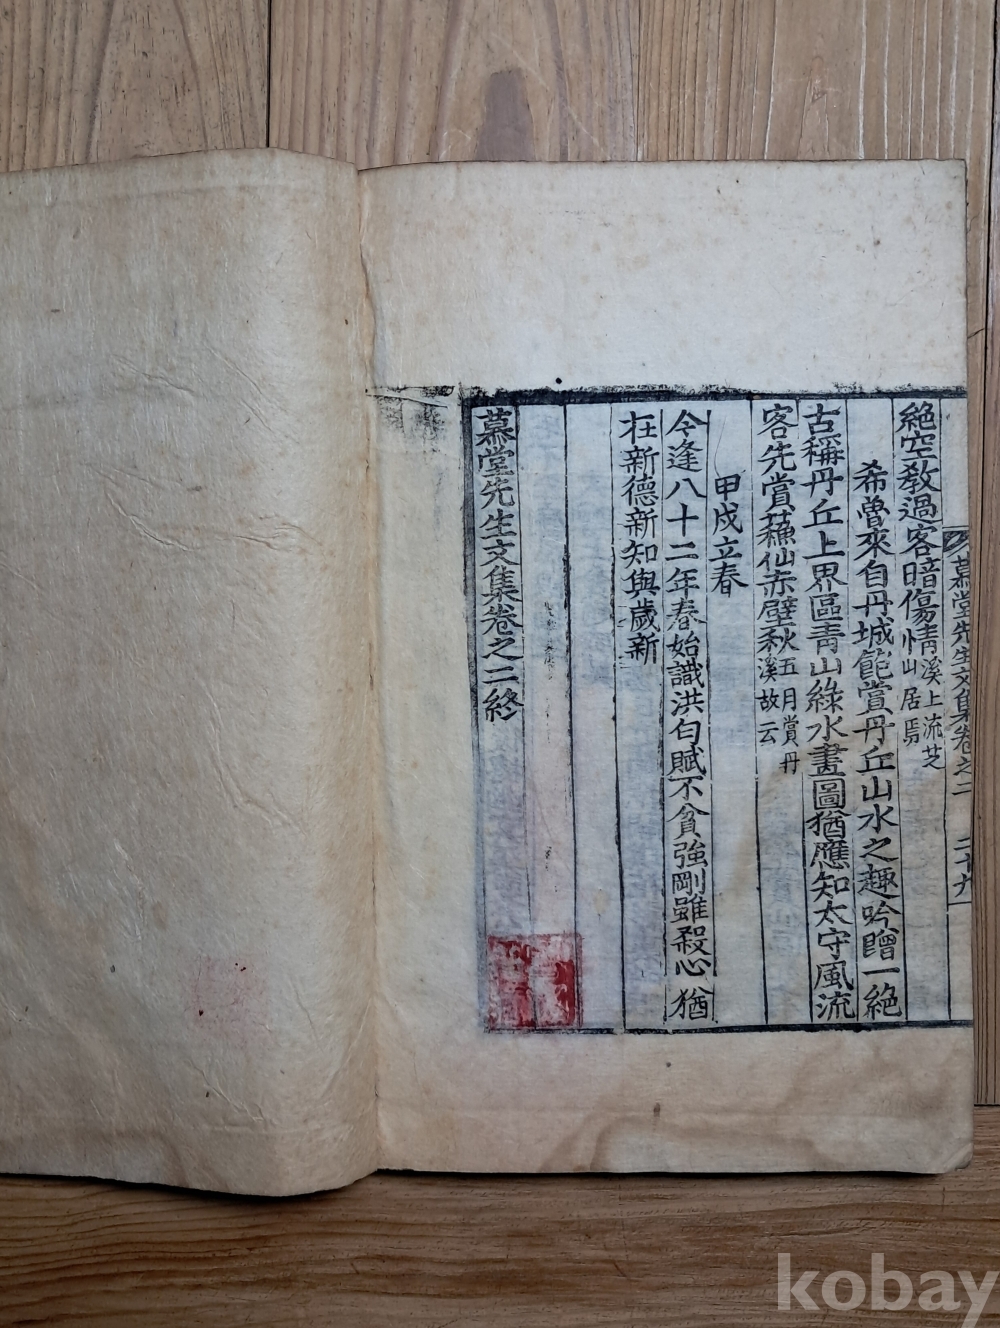 慕堂先生文集卷之二 二十九
絕空教過客暗傷情溪上流芝山居焉
希曾來自丹城能賞丹丘山水之趣吟贈一絕
古稱丹丘上界區青山綠水畫圖猶應知太守風流
客先賞蘓仙赤壁秋五月賞丹溪故云
甲戌立春
今逢八十二年春始識洪匀賦不貧強剛雖殺心猶
在新德新知與歲新
慕堂先生文集卷之二終
kobay